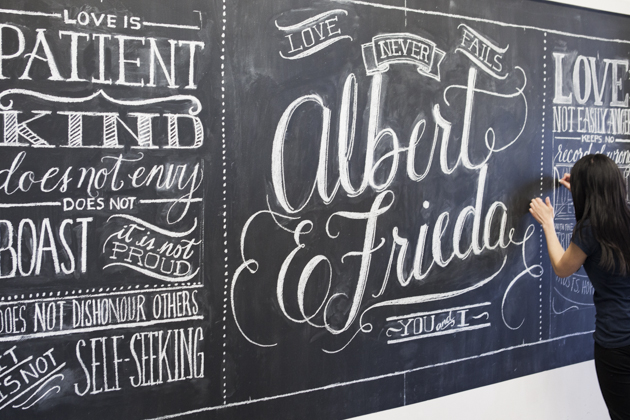 LOVE IS
PATIENT
KIND
does not envy
DOES NOT
BOAST
it is not
PROUD
DOES NOT DISHONOUR OTHERS
IT
IS NOT
SELF-SEEKING
LOVE NEVER FAILS
Albert
& Frieda
YOU and I
LOVE
NOT EASILY ANGE
KEEPS NO
record of wrong